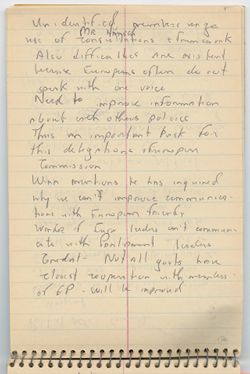 Unidentified members urge
MR HANSEN
use of consultations & framework
Also difficulties are existent
because Europeans often do not
speak with one voice
Need to improve information
about with others policies
Thus an important task for
this delegation & European
Commission
Winn mentions he has inquired
why we can't improve communica-
tions with European friends
Wonders if Euro leaders can't communi-
cate with Parliament leaders
Not all govts have
closest cooperation with members
of EP - will be improved